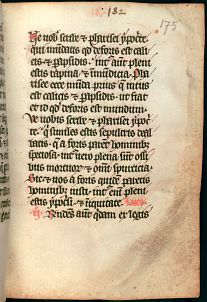 182
175
Ue vob scribe & pharisei ypocrite.
qui mundatis qd deforis est cali
cis & parapsidis. int aut pleni
estis rapina & inmundicia. Pha
risee cece munda prius qd intus
est calicis & parapsidis. ut fiat
et id qd deforis est mundum.
Ue vobis scribe & pharisei ypocri
te. qa similes estis sepulcris deal
batis. q a foris parent hominib
speciosa. int vero plena sunt ossi
bus mortuor & omi spurcicia.
Sic & vos a foris quide paretis
hominib iusti. int aut pleni
estis ypocrisi & iniquitate.
aut qdam ex legis